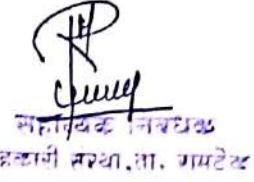 सहाय्यक निबंधक
सहकारी संस्था, ता. रामटेक